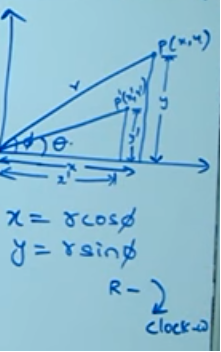 P(x,y)
r
P'(x',y')
y
y'
φ θ
x
x'
x = rcosφ
y = rsinφ
R -
clock-w